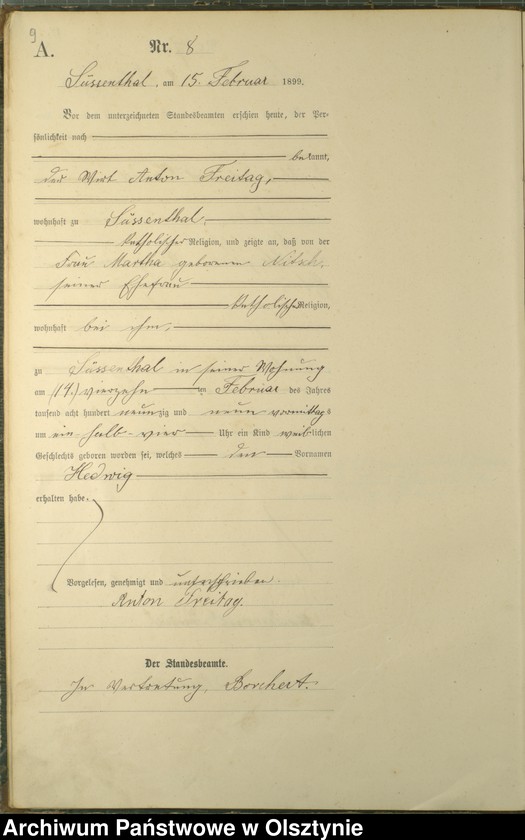 9
A.
Nr. 8
Süssenthal, am 15. Februar 1899.
Vor dem unterzeichneten Standesbeamten erschien heute, der Per-
sönlichkeit nach
bekannt,
der Wirt Anton Freitag,
wohnhaft zu Süssenthal
katholischer Religion, und zeigte an, daß von der
Frau Martha geborenen Nitsch,
seiner Ehefrau
katholischer Religion,
wohnhaft bei ihm,
zu Süssenthal in seiner Wohnung
am (14.) vierzehn ten Februar des Jahres
tausend acht hundert neunzig und neun vormittags
um ein halb vier Uhr ein Kind weiblichen
Geschlechts geboren worden sei, welches den Vornamen
Hedwig
erhalten habe.
Vorgelesen, genehmigt und unterschrieben.
Anton Freitag.
Der Standesbeamte.
In Vertretung, Borchert.
Archiwum Państwowe w Olsztynie